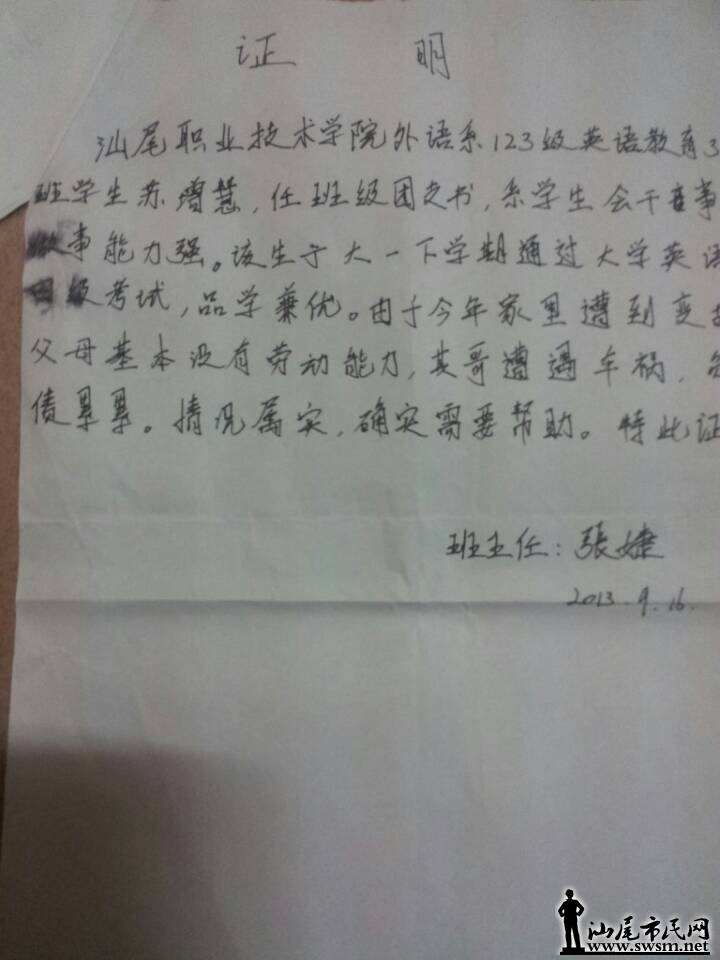 证 明
汕尾职业技术学院外语系123级英语教育3
班学生苏增慧，任班级团支书，系学生会干事
做事能力强。该生于大一下学期通过大学英语
四级考试，品学兼优。由于今年家里遭到变故
父母基本没有劳动能力，其哥遭遇车祸，负
债累累。情况属实，确实需要帮助。特此证
班主任：張婕
2013.9.16.
汕尾市民网
www.swsm.net